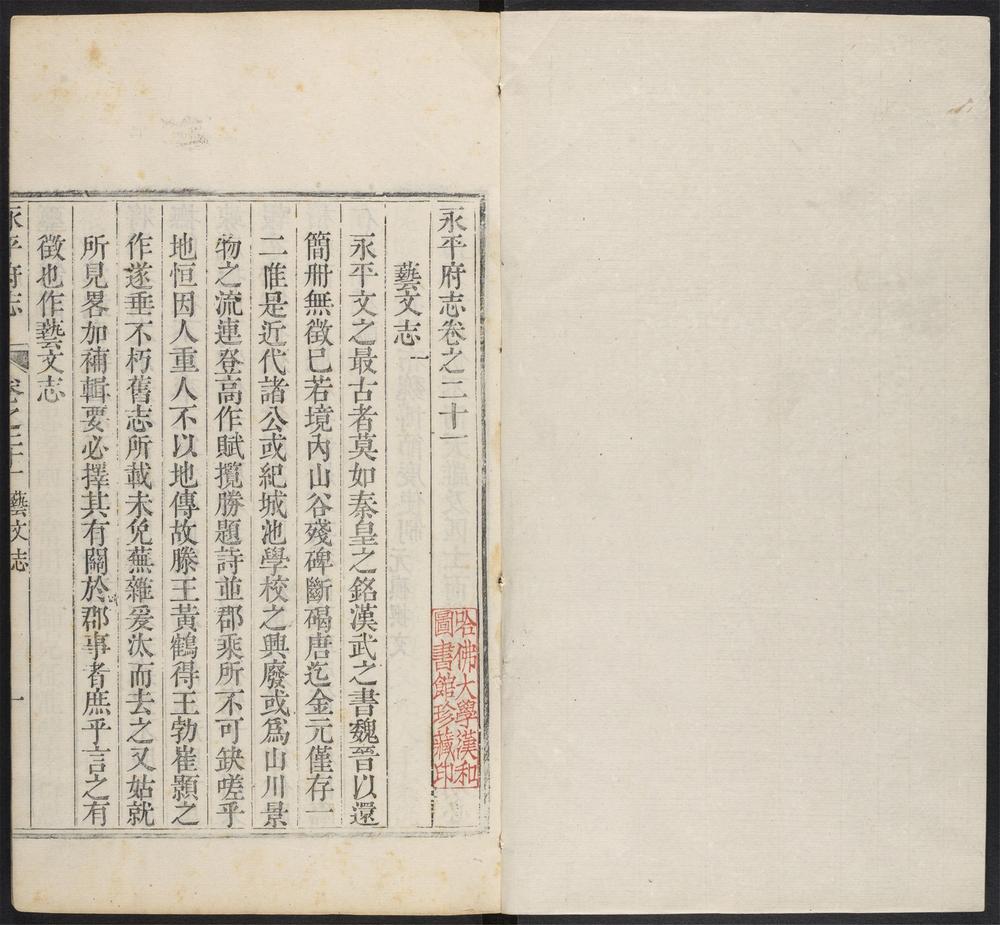 永平府志卷之二十一
藝文志一
永平文之最古者莫如秦皇之銘漢武之書魏晉以還
簡冊無徵已若境內山谷殘碑斷碣唐迄金元僅存一
二惟是近代諸公或紀城池學校之興廢或爲山川景
物之流連登高作賦攬勝題詩並郡乘所不可缺嗟乎
地恒因人重人不以地傳故滕王黃鶴得王勃崔顥之
作遂垂不朽舊志所載未免蕪雜爰汰而去之又姑就
所見畧加補輯要必擇其有關於郡事者庶乎言之有
徵也作藝文志
永平府志 卷之二十一 藝文志 一
哈佛大學漢和
圖書館珍藏印